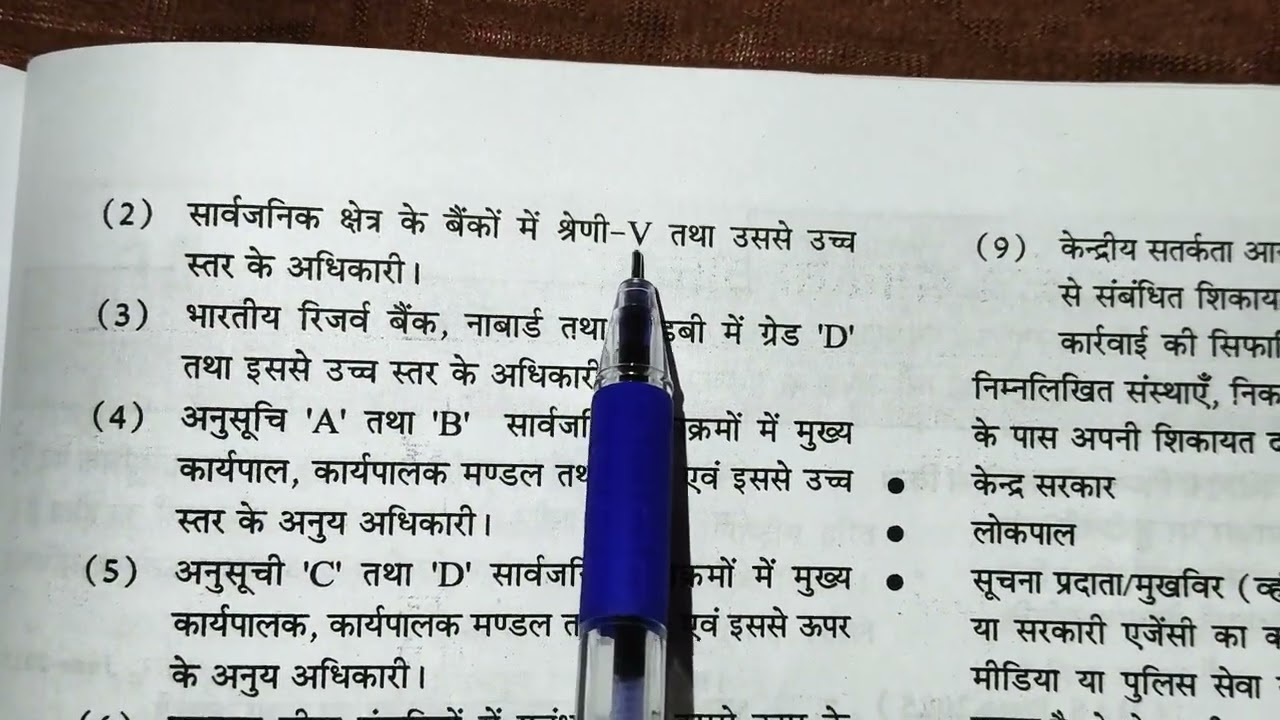 (2) सार्वजनिक क्षेत्र के बैंकों में श्रेणी-V तथा उससे उच्च
स्तर के अधिकारी।
(3) भारतीय रिजर्व बैंक, नाबार्ड तथा में ग्रेड 'D'
तथा इससे उच्च स्तर के अधिकारी
(4) अनुसूचि 'A' तथा 'B' में मुख्य
कार्यपाल, कार्यपालक मण्डल एवं इससे उच्च
स्तर के अनुय अधिकारी।
(5) अनुसूची 'C' तथा 'D' में मुख्य
कार्यपालक, कार्यपालक मण्डल एवं इससे ऊपर
के अनुय अधिकारी।
(9) केन्द्रीय सतर्कता
से संबंधित
कार्रवाई की
निम्नलिखित संस्थाएँ,
के पास अपनी शिकायत
• केन्द्र सरकार
• लोकपाल
• सूचना प्रदाता/मुखविर
या सरकारी एजेंसी का
मीडिया या पुलिस सेवा